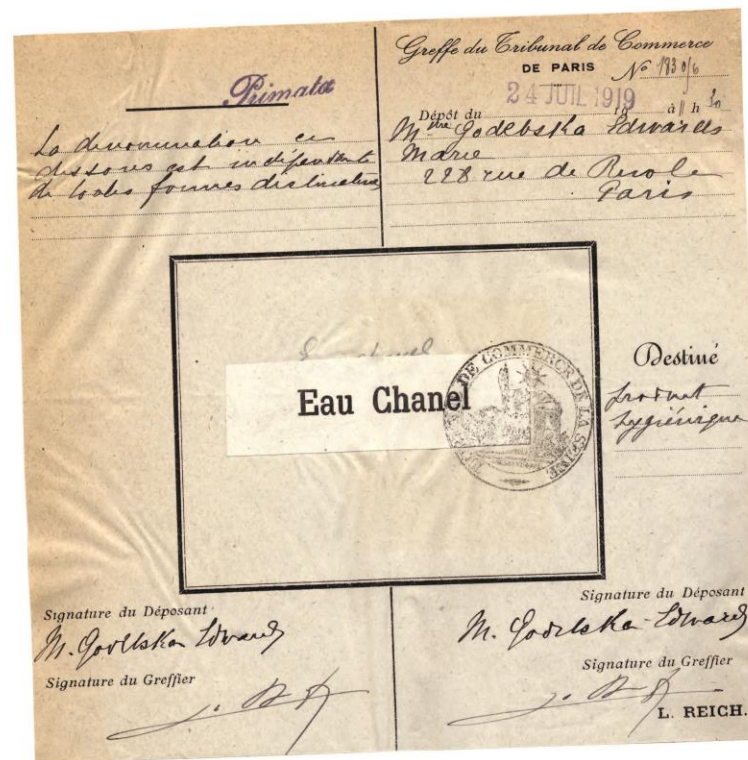 Primata
La dénomination ci
dessous est indépendante
de toutes formes distinctives
Greffe du Tribunal de Commerce
DE PARIS Nº
Dépôt du 24 JUIL 1919 19 à 11 h 30
Mme Godebska Edwards
Marie
228 rue de Rivoli
Paris
Eau Chanel
TRIBUNAL DE COMMERCE DE LA SEINE
Destiné
produit
hygiénique
Signature du Déposant
M. Godebska Edwards
Signature du Greffier
Signature du Déposant
M. Godebska-Edwards
Signature du Greffier
L. REICH.